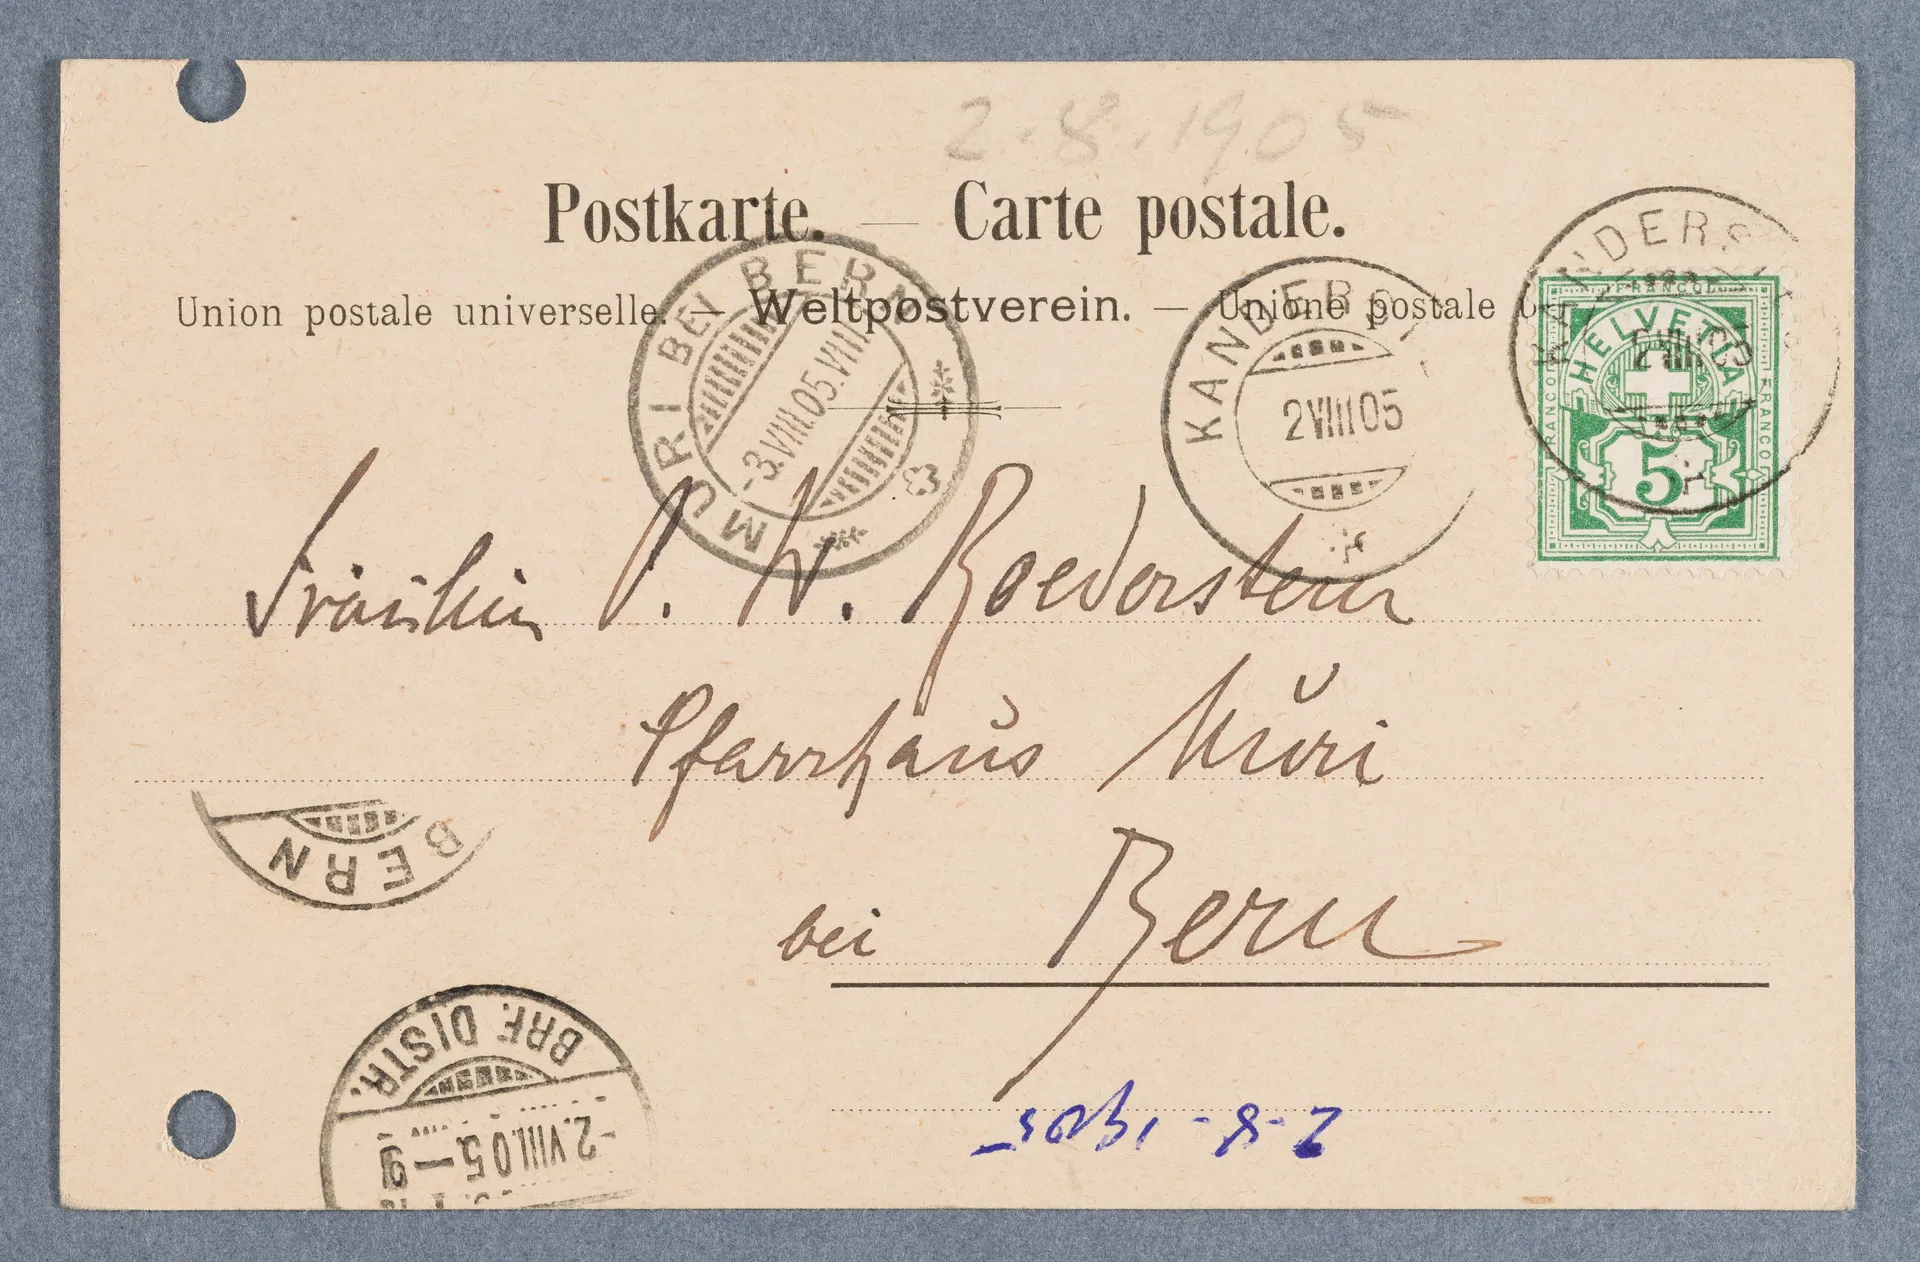 2.8.1905
Postkarte. — Carte postale.
Union postale universelle. — Weltpostverein. — Unione postale
MURI BEI BERN
-3.VIII.05.VIII.
KANDERST
2VIII05
KANDERS
2VIII05
FRANCO
HELVETIA
FRANCO
FRANCO
5
Fräulein O. W. Roederstein
Pfarrhaus Muri
bei Bern
BERN
BRF. DISTR.
-2.VIII.05-9
2-8-1905